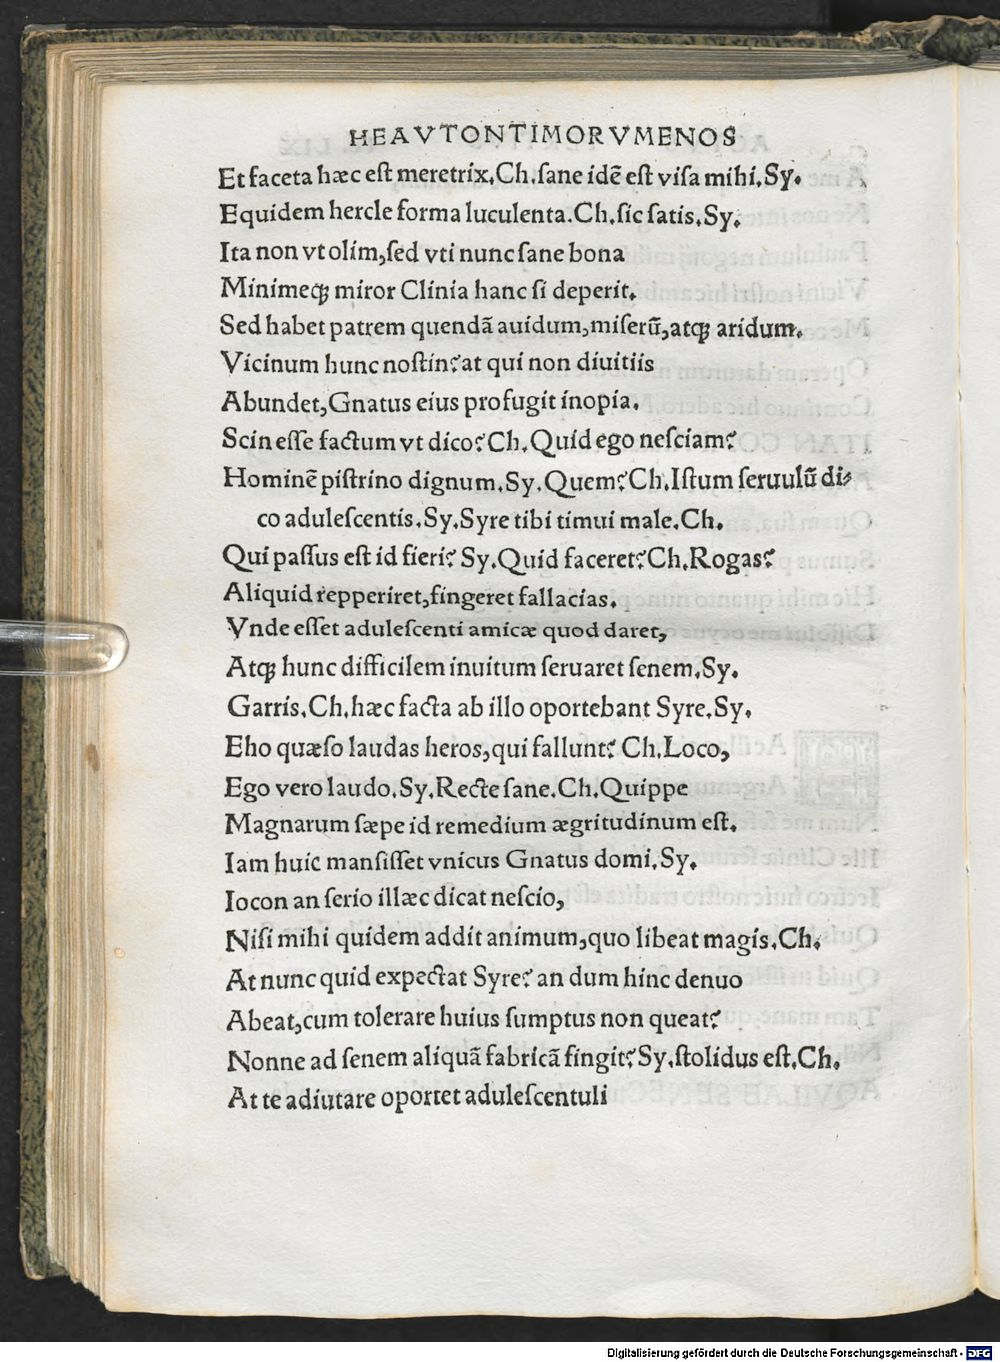 HEAVTONTIMORVMENOS
Et faceta hæc eſt meretrix, Ch. ſane idē eſt viſa mihi. Sy.
Equidem hercle forma luculenta. Ch. ſic ſatis. Sy.
Ita non vt olim, ſed vti nunc ſane bona
Minimeq; miror Clinia hanc ſi deperit.
Sed habet patrem quendā auidum, miſerū, atq; aridum.
Vicinum hunc noſtin? at qui non diuitiis
Abundet, Gnatus eius profugit inopia.
Scin eſſe factum vt dico? Ch. Quid ego neſciam?
Hominē piſtrino dignum. Sy. Quem? Ch. Iſtum ſeruulū di⸗
co aduleſcentis. Sy. Syre tibi timui male. Ch.
Qui paſſus eſt id fieri? Sy. Quid faceret? Ch. Rogas?
Aliquid repperiret, fingeret fallacias.
Vnde eſſet aduleſcenti amicæ quod daret,
Atq; hunc difficilem inuitum ſeruaret ſenem. Sy.
Garris. Ch. hæc facta ab illo oportebant Syre. Sy.
Eho quæſo laudas heros, qui fallunt? Ch. Loco,
Ego vero laudo. Sy. Recte ſane. Ch. Quippe
Magnarum ſæpe id remedium ægritudinum eſt.
Iam huic manſiſſet vnicus Gnatus domi. Sy.
Iocon an ſerio illæc dicat neſcio,
Niſi mihi quidem addit animum, quo libeat magis. Ch.
At nunc quid expectat Syre? an dum hinc denuo
Abeat, cum tolerare huius ſumptus non queat?
Nonne ad ſenem aliquā fabricā fingit? Sy. ſtolidus eſt. Ch.
At te adiutare oportet aduleſcentuli
Digitalisierung gefördert durch die Deutsche Forschungsgemeinschaft - DFG